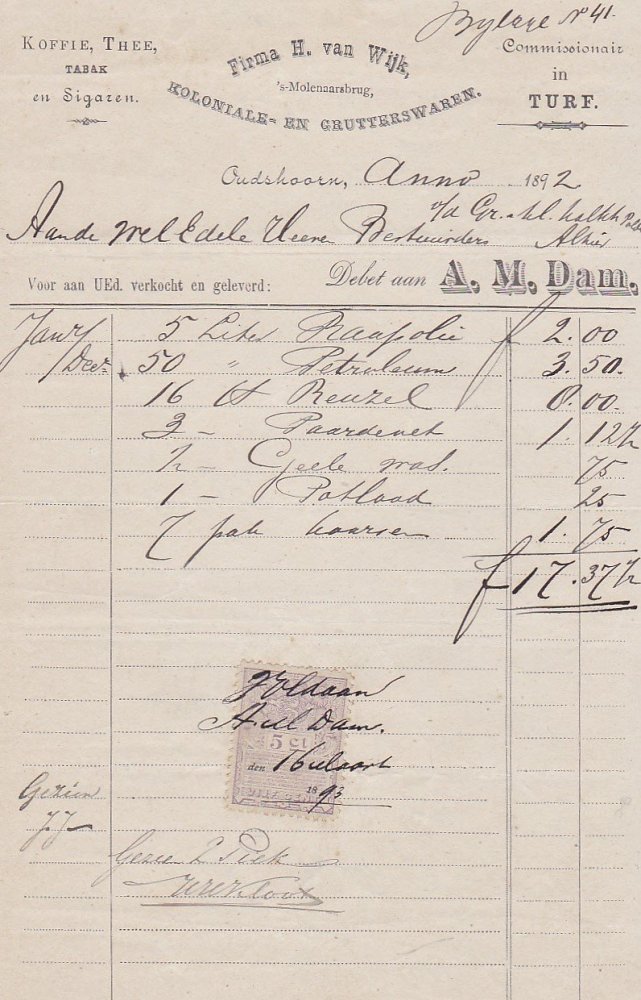 Bylage No 41.
KOFFIE, THEE,
TABAK
en Sigaren.
Firma H. van Wijk,
's-Molenaarsbrug,
KOLONIALE- EN GRUTTERSWAREN.
Commissionair
in
TURF.
Oudshoorn, Anno 1892
v/d Gr.
Aan de WelEdele Heeren Bestuurders Alhier
Voor aan UEd. verkocht en geleverd: Debet aan A. M. Dam.
Jan/ 5 Liter Raapolie f 2.00
Dec. 50 " Petroleum 3.50.
16 ℔ Reuzel 8.00.
3 — Paardevet 1.12½
½ — Geele was. 75
1 — Potlood 25
7 pak kaarsen 1.75
f 17.37½
Voldaan
A. M. Dam.
5 CT
den 16 Maart
1893
Gezien
J.J.
Gezien